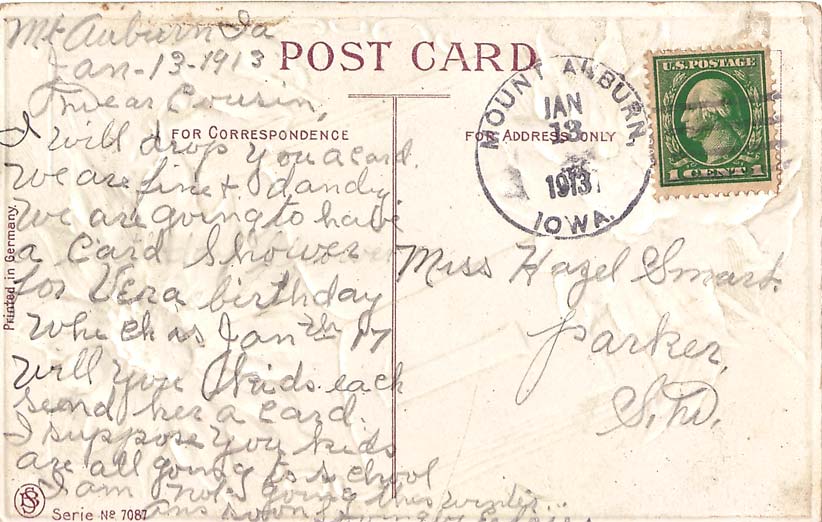 Mt Auburn Ia
Jan-13-1913
Dear Cousin,
I will drop you a card.
We are fine + dandy
We are going to have
a card shower
for Vera birthday
Which is Jan the 17
Will you kids each
send her a card.
I suppose you kids
are all going to school
I am not going this winter..
ans soon
POST CARD
FOR CORRESPONDENCE
FOR ADDRESS ONLY
MOUNT AUBURN,
JAN
13
1913
IOWA.
U.S. POSTAGE
1 CENT 1
Miss Hazel Smart.
Parker,
S.D.
Printed in Germany.
Serie No 7087